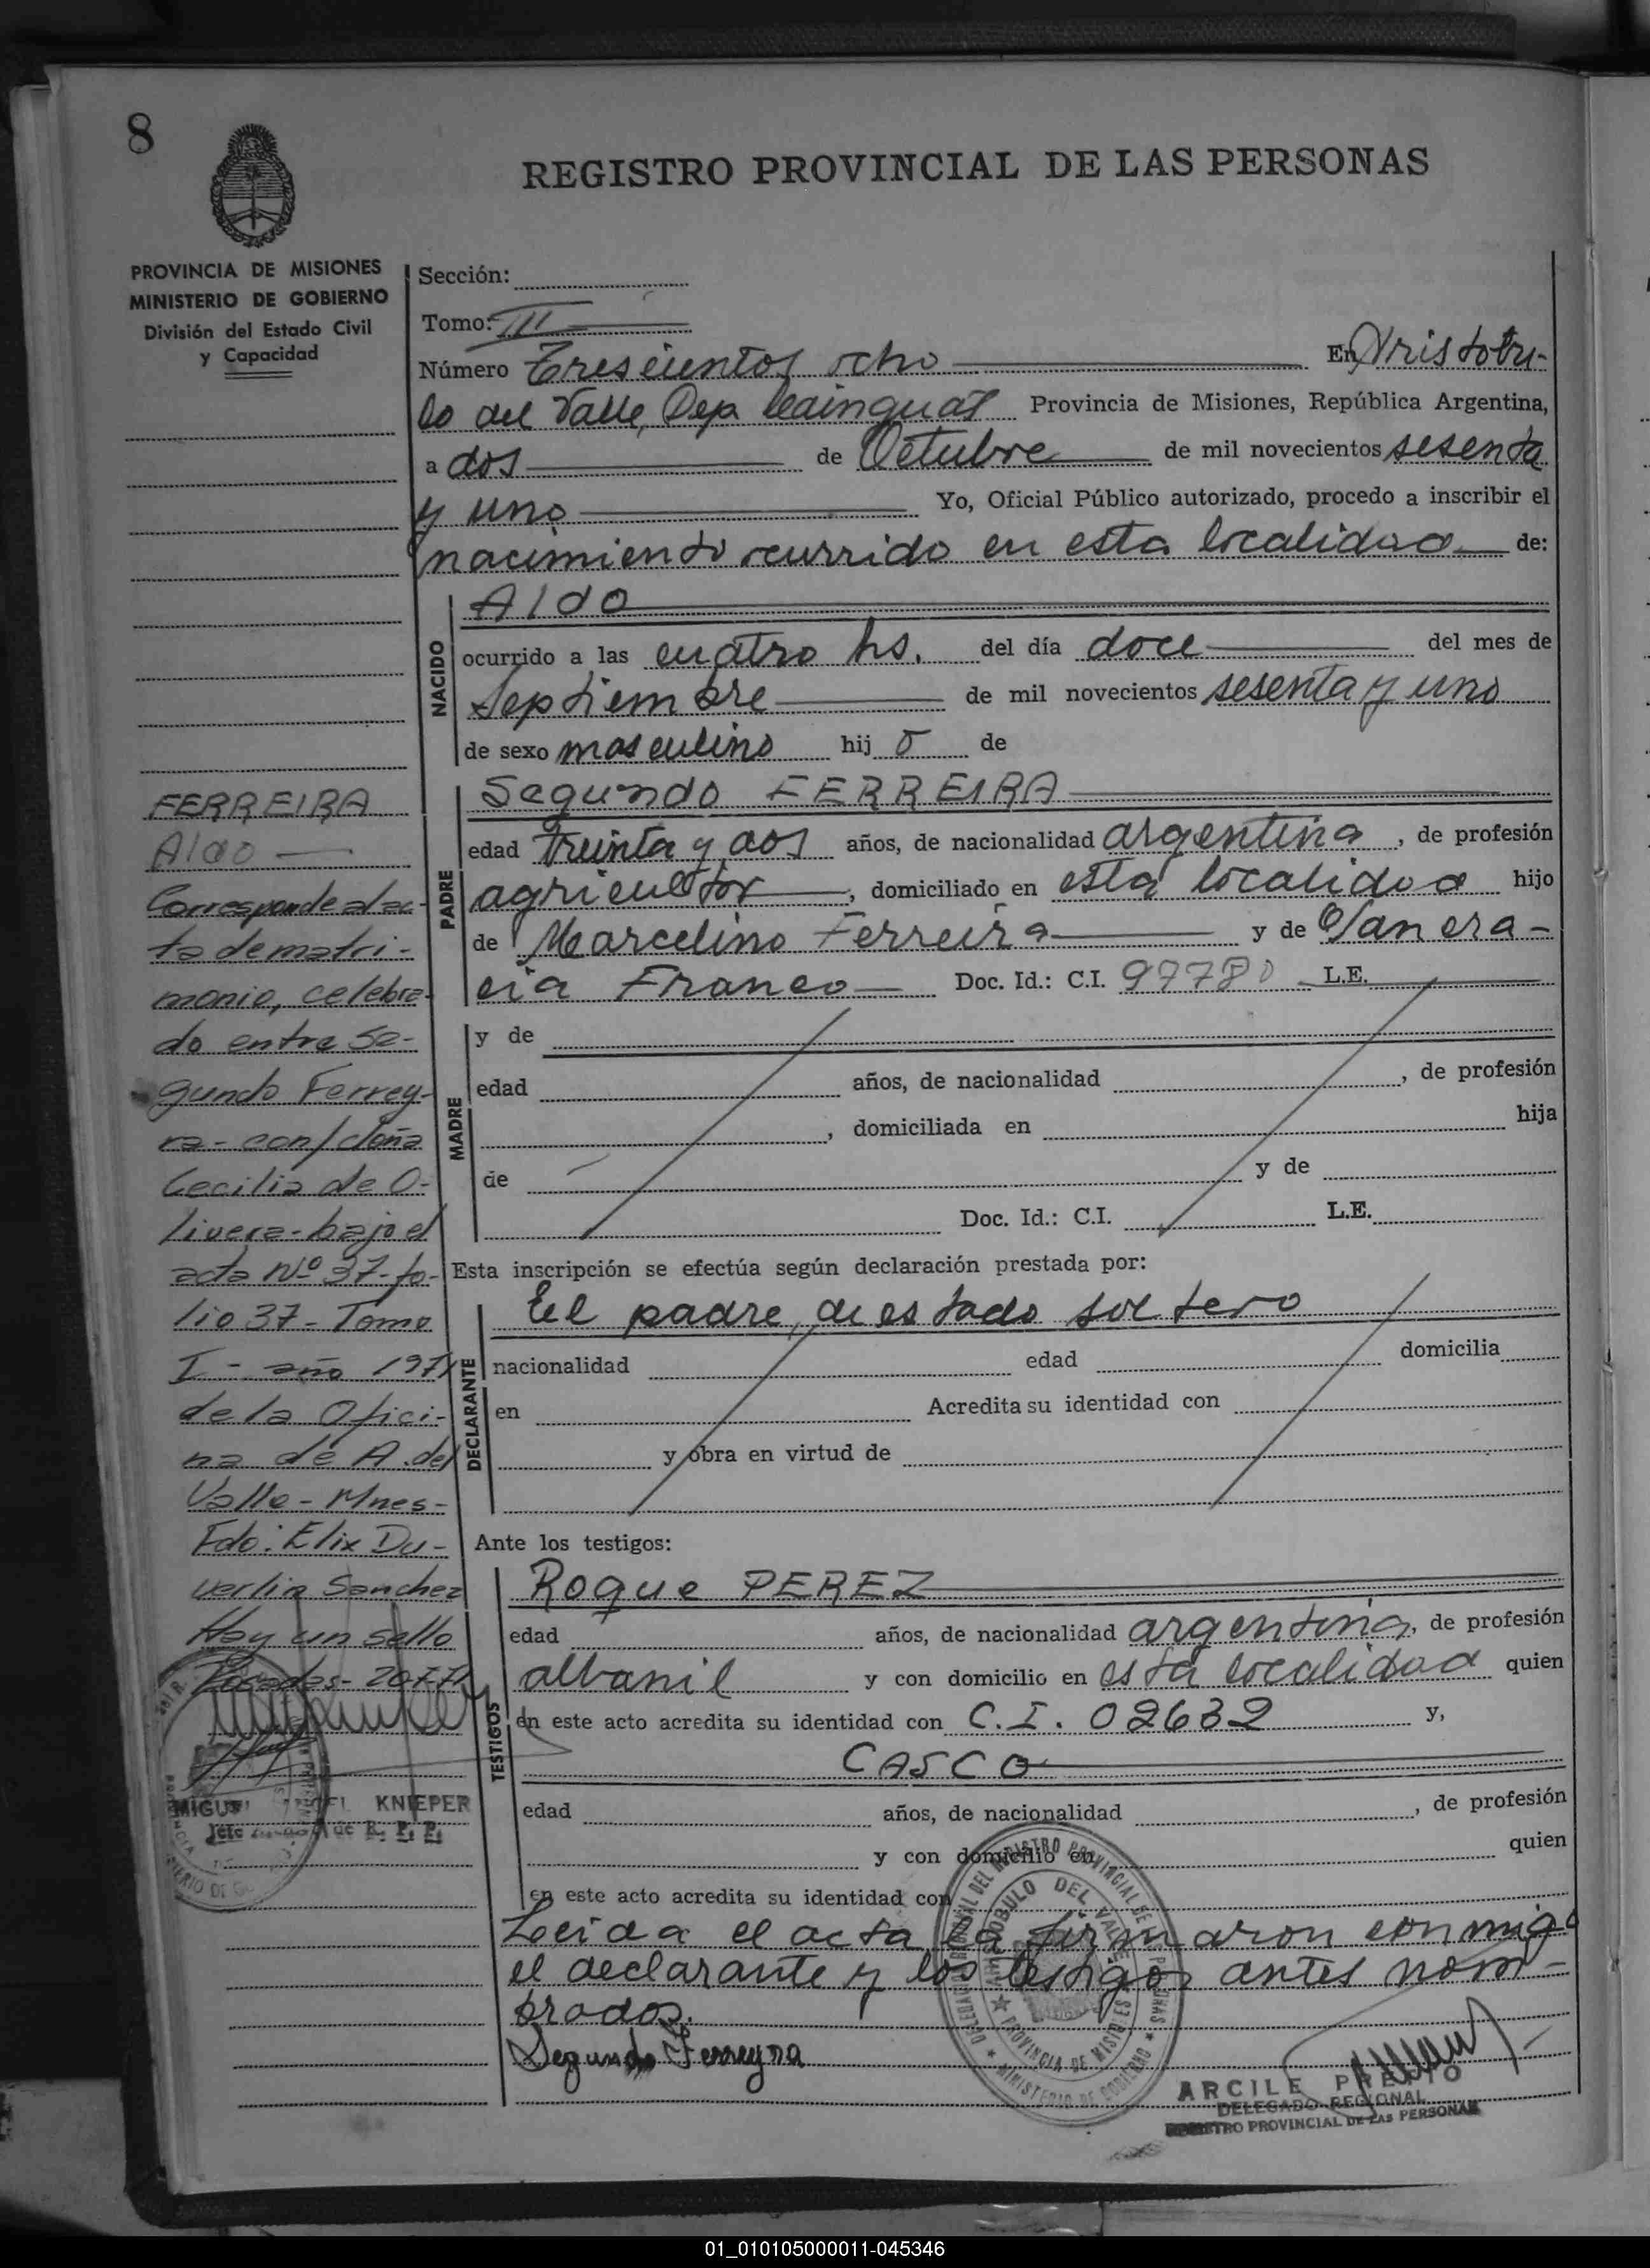 8
REGISTRO PROVINCIAL DE LAS PERSONAS
PROVINCIA DE MISIONES
MINISTERIO DE GOBIERNO
División del Estado Civil
y Capacidad
Sección:
Tomo: III
Número Trescientos ocho En Aristobu-
lo del Valle, Dep. Cainguas Provincia de Misiones, República Argentina,
a dos de Octubre de mil novecientos sesenta
y uno Yo, Oficial Público autorizado, procedo a inscribir el
nacimiento ocurrido en esta localidad de:
NACIDO
Aldo
ocurrido a las cuatro hs. del día doce del mes de
Septiembre de mil novecientos sesenta y uno
de sexo masculino hijo de
PADRE
Segundo FERREIRA
edad treinta y dos años, de nacionalidad argentina, de profesión
agricultor, domiciliado en esta localidad hijo
de Marcelino Ferreira y de
cia Franco Doc. Id.: C.I. 97780 L.E.
MADRE
y de
edad años, de nacionalidad , de profesión
, domiciliada en hija
de y de
Doc. Id.: C.I. L.E.
Esta inscripción se efectúa según declaración prestada por:
DECLARANTE
El padre, de estado soltero
nacionalidad edad domicilia
en Acredita su identidad con
y obra en virtud de
Ante los testigos:
TESTIGOS
Roque PEREZ
edad años, de nacionalidad argentina, de profesión
albanil y con domicilio en esta localidad quien
en este acto acredita su identidad con C.I. 02632 y,
CASCO
edad años, de nacionalidad , de profesión
y con domicilio en quien
en este acto acredita su identidad con
Leida el acta la firmaron conmigo
el declarante y los testigos antes nom-
brados.
Segundo Ferreyra
ARCILE PRETTO
DELEGADO REGIONAL
REGISTRO PROVINCIAL DE LAS PERSONAS
DELEGACION REGIONAL DEL REGISTRO PROVINCIAL DE LAS PERSONAS
MINISTERIO DE GOBIERNO
ARISTOBULO DEL VALLE
PROVINCIA DE MISIONES
FERREIRA
Aldo
Corresponde al ac-
ta de matri-
monio, celebra-
do entre Se-
gundo Ferrey-
ra - con/doña
Cecilia de O-
livera - bajo el
acta Nº 37 - fo-
lio 37 - Tomo
I - año 1971
de la Ofici-
na de A. del
Valle - Mnes -
Fdo: Elix Du-
verlia Sanchez
Hay un sello
Posadas - 20-7-71
KNIEPER
Jefe de R. P. P.
01_010105000011-045346